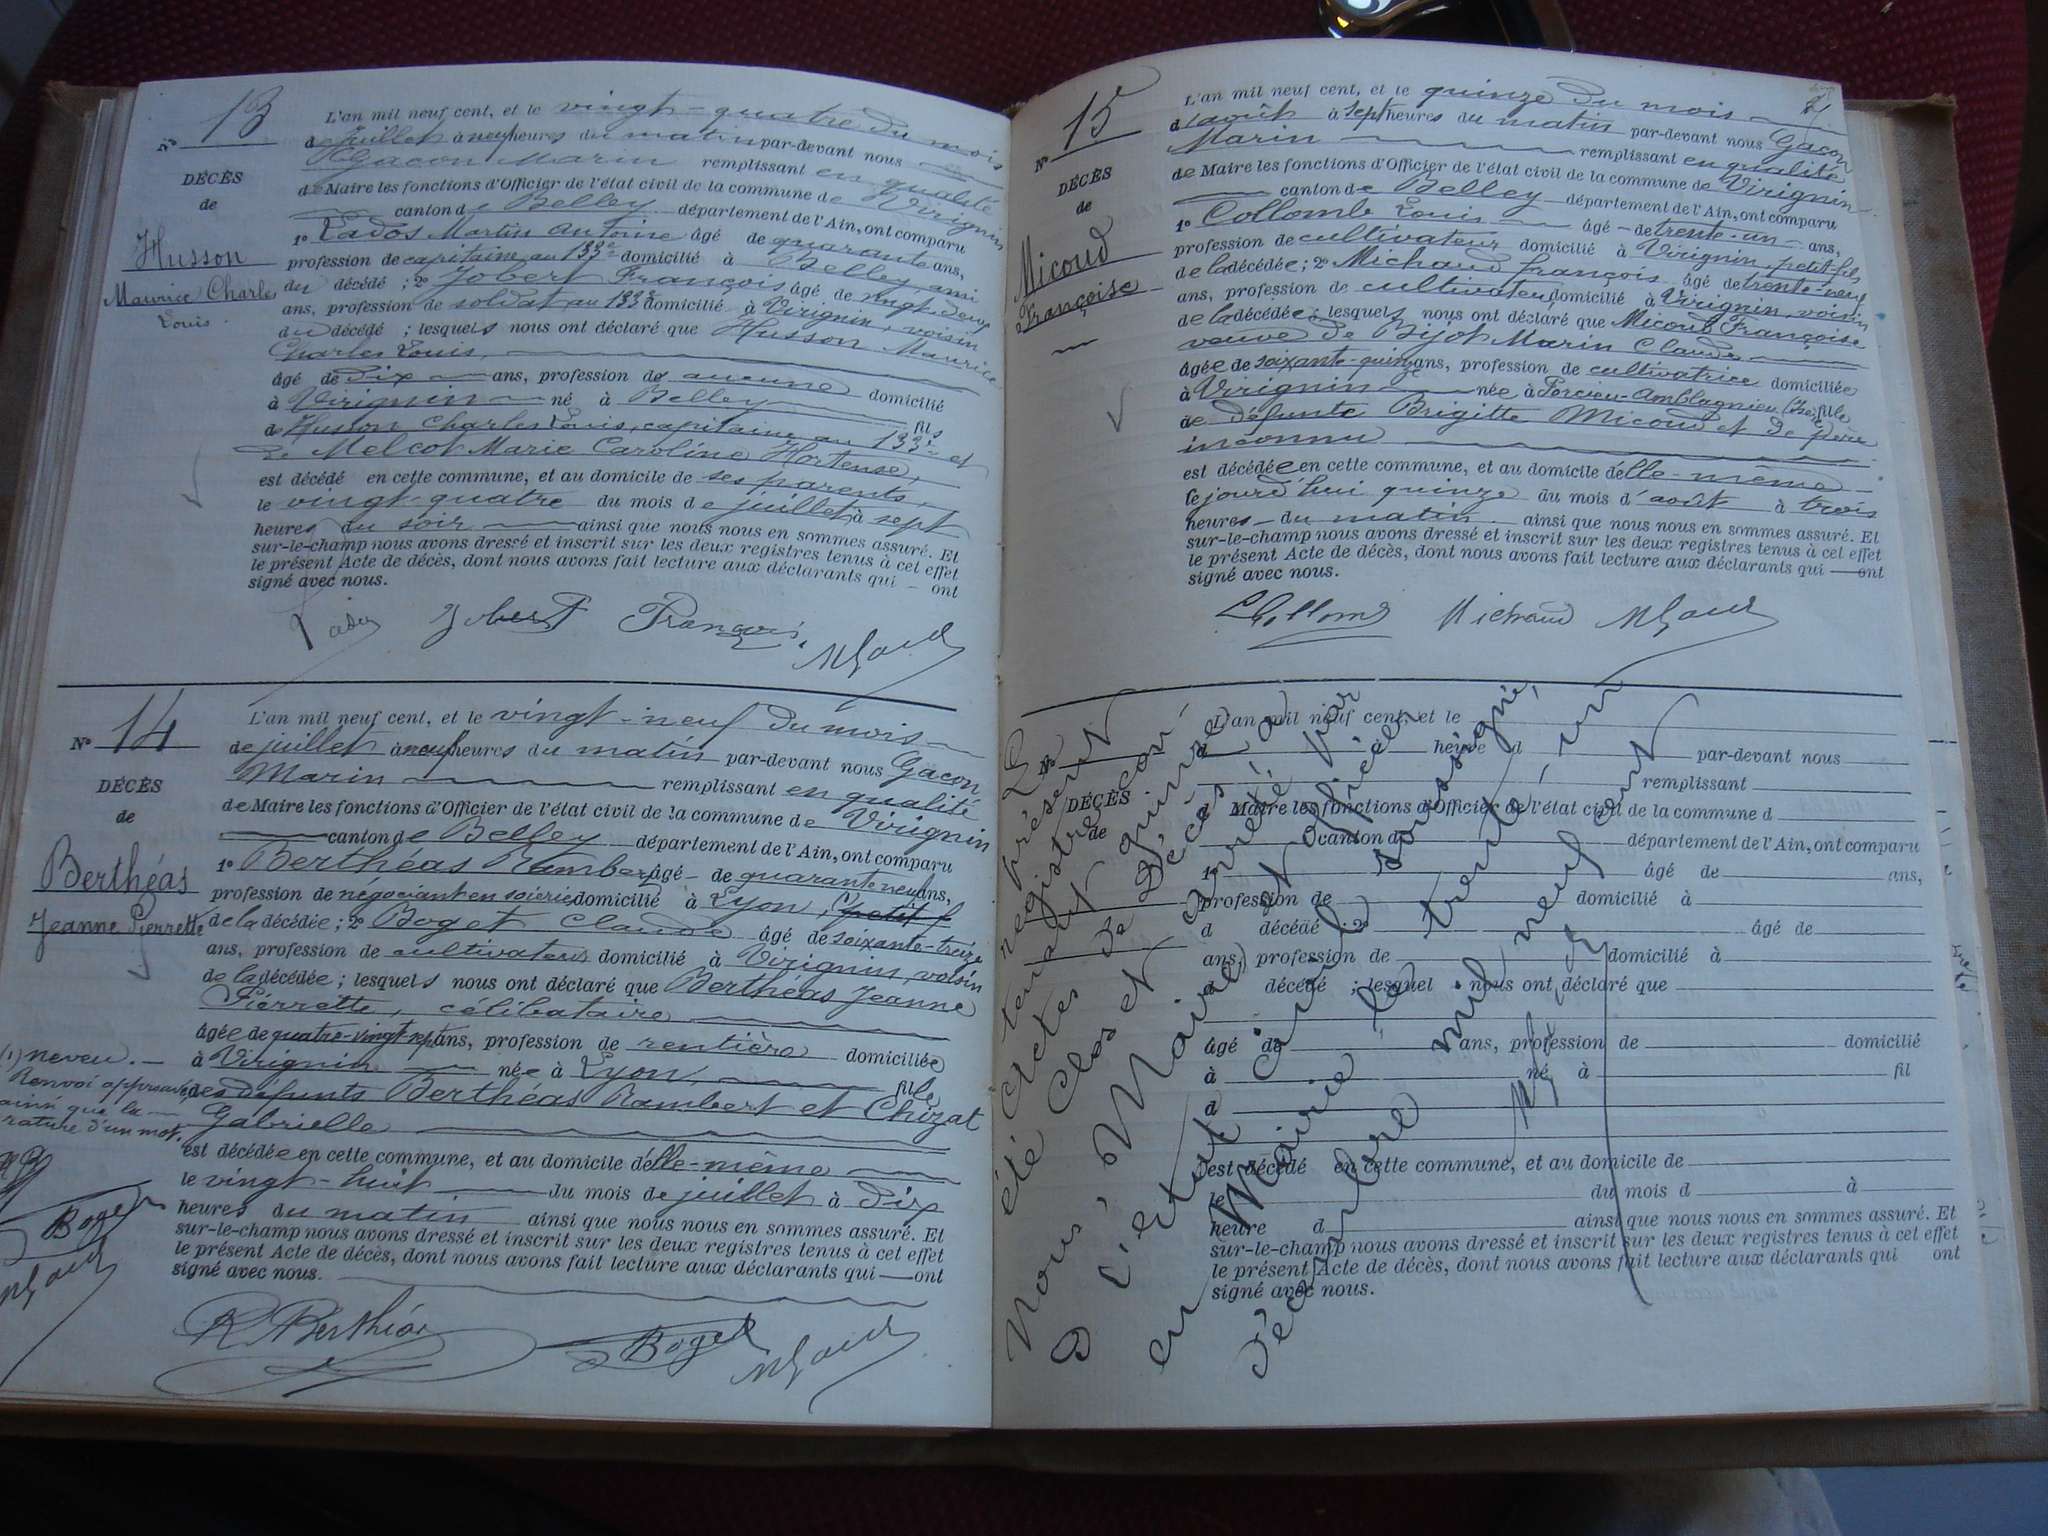 Nº 13
DÉCÈS
de
Husson
Maurice Charles
Louis.
L'an mil neuf cent, et le vingt-quatre du mois
de juillet à neuf heures du matin par-devant nous
Gacon Marin remplissant en qualité
de Maire les fonctions d'Officier de l'état civil de la commune de Virignin
canton de Belley département de l'Ain, ont comparu
1º Lados Martin Antoine âgé de quarante ans,
profession de capitaine au 133e domicilié à Belley, ami
du décédé ; 2º Jobert François âgé de vingt-deux
ans, profession de soldat au 133e domicilié à Virignin, voisin
du décédé ; lesquels nous ont déclaré que Husson Maurice
Charles Louis,
âgé de dix ans, profession de aucune domicilié
à Virignin né à Belley fils
de Husson Charles Louis, capitaine au 133e et
de Melcot Marie Caroline Hortense,
est décédé en cette commune, et au domicile de ses parents,
le vingt-quatre du mois de juillet à sept
heures du soir ainsi que nous nous en sommes assuré. Et
sur-le-champ nous avons dressé et inscrit sur les deux registres tenus à cet effet
le présent Acte de décès, dont nous avons fait lecture aux déclarants qui ont
signé avec nous.
Lados Jobert François MGacon
Nº 14
DÉCÈS
de
Berthéas
Jeanne Pierrette
L'an mil neuf cent, et le vingt-neuf du mois
de juillet à neuf heures du matin par-devant nous Gacon
Marin remplissant en qualité
de Maire les fonctions d'Officier de l'état civil de la commune de Virignin
canton de Belley département de l'Ain, ont comparu
1º Berthéas Rambert âgé de quarante neuf ans,
profession de négociant en soierie domicilié à Lyon, (1) petit f
de la décédée ; 2º Boget Claude âgé de soixante-treize
ans, profession de cultivateur domicilié à Virignin, voisin
de la décédée ; lesquels nous ont déclaré que Berthéas Jeanne
Pierrette, célibataire
âgée de quatre-vingt-sept ans, profession de rentière domiciliée
à Virignin née à Lyon, fille
des défunts Berthéas Rambert et Chizat
Gabrielle
est décédée en cette commune, et au domicile d'elle-même
le vingt-huit du mois de juillet à dix
heures du matin ainsi que nous nous en sommes assuré. Et
sur-le-champ nous avons dressé et inscrit sur les deux registres tenus à cet effet
le présent Acte de décès, dont nous avons fait lecture aux déclarants qui ont
signé avec nous.
(1) neveu.
Renvoi approuvé
ainsi que la
rature d'un mot.
RB
Boget
MGacon
R Berthéas Boget MGacon
Nº 15
DÉCÈS
de
Micoud
Françoise
L'an mil neuf cent, et le quinze du mois
d'août à sept heures du matin par-devant nous Gacon
Marin remplissant en qualité
de Maire les fonctions d'Officier de l'état civil de la commune de Virignin
canton de Belley département de l'Ain, ont comparu
1º Collomb Louis âgé de trente-un ans,
profession de cultivateur domicilié à Virignin, petit-fils
de la décédée ; 2º Michaud François âgé de trente-neuf
ans, profession de cultivateur domicilié à Virignin, voisin
de la décédée ; lesquels nous ont déclaré que Micoud Françoise
veuve de Bijot Marin Claude
âgée de soixante-quinze ans, profession de cultivatrice domiciliée
à Virignin née à Porcieu-Amblagnieu (Isère) fille
de défunte Brigitte Micoud et de père
inconnu
est décédée en cette commune, et au domicile d'elle-même
le jourd'hui quinze du mois d'août à trois
heures du matin ainsi que nous nous en sommes assuré. Et
sur-le-champ nous avons dressé et inscrit sur les deux registres tenus à cet effet
le présent Acte de décès, dont nous avons fait lecture aux déclarants qui ont
signé avec nous.
L Collomb Michaud MGacon
Nº
DÉCÈS
de
L'an mil neuf cent, et le
d heure d par-devant nous
remplissant
d Maire les fonctions d'Officier de l'état civil de la commune d
canton d département de l'Ain, ont comparu
1º âgé de ans,
profession de domicilié à
d décédé ; 2º âgé de
ans, profession de domicilié à
d décédé ; lesquel nous ont déclaré que
âgé de ans, profession de domicilié
à né à fil
d
est décédé en cette commune, et au domicile de
le du mois d à
heure d ainsi que nous nous en sommes assuré. Et
sur-le-champ nous avons dressé et inscrit sur les deux registres tenus à cet effet
le présent Acte de décès, dont nous avons fait lecture aux déclarants qui ont
signé avec nous.
Le présent
registre con
tenant quinze
Actes de Décès a
été Clos et arrêté par
Nous, Maire et officier
d l'état civil soussigné,
en Mairie le trente-un
décembre mil neuf cent
MGacon